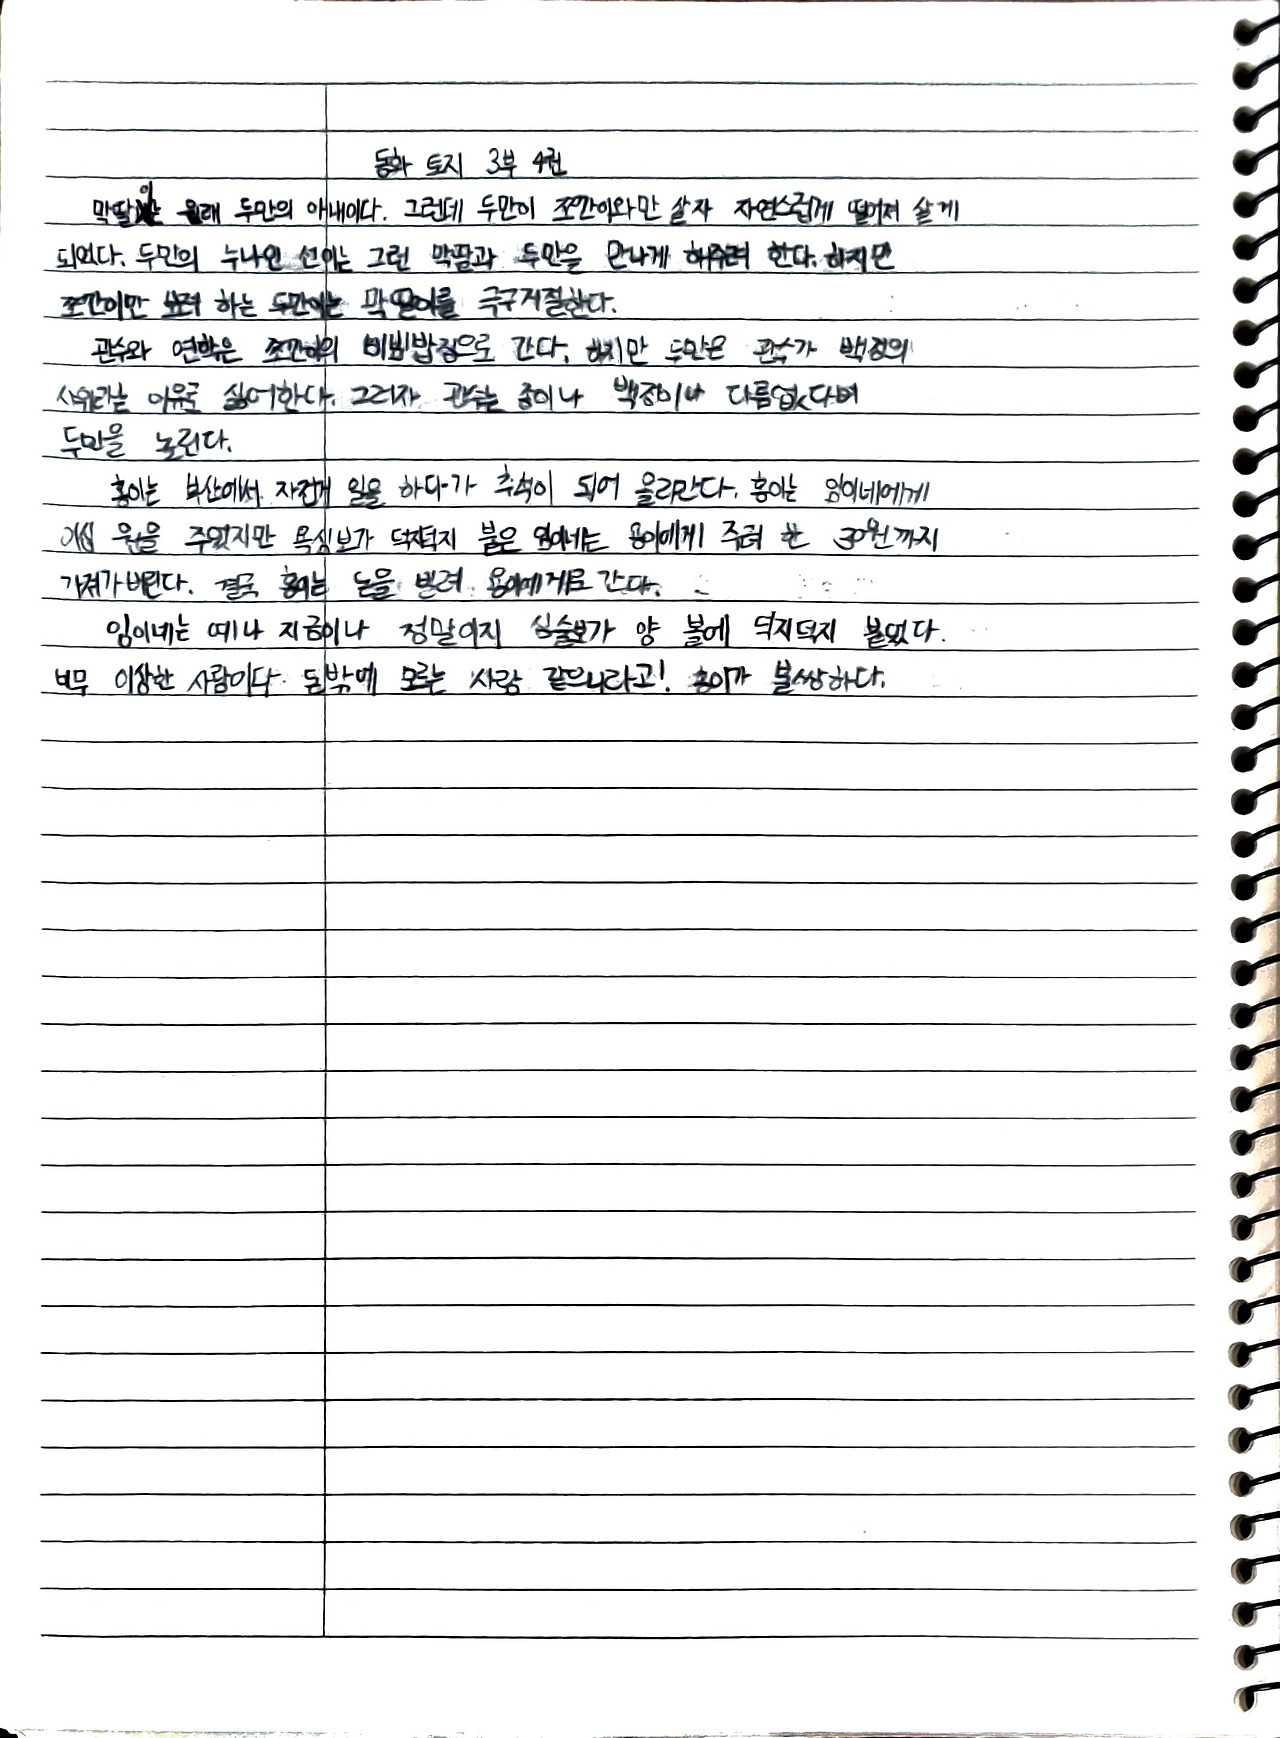 동화 토지 3부 4권
막딸이는 원래 두만의 아내이다. 그런데 두만이 쪼깐이와만 살자 자연스럽게 떨어져 살게
되었다. 두만의 누나인 선이는 그런 막딸과 두만을 만나게 해주려 한다. 하지만
쪼깐이만 보려 하는 두만이는 막딸이를 극구거절한다.
관수와 연학은 쪼깐이의 비빔밥집으로 간다. 하지만 두만은 관수가 백정의
사위라는 이유로 싫어한다. 그러자 관수는 종이나 백정이나 다름없다며
두만을 놀린다.
홍이는 부산에서 자전거 일을 하다가 추석이 되어 올라간다. 홍이는 임이네에게
이십 원을 주었지만 욕심보가 덕지덕지 붙은 임이네는 용이에게 주려 한 30원까지
가져가버린다. 결국 홍이는 돈을 빌려 용이에게로 간다.
임이네는 예나 지금이나 정말이지 심술보가 양 볼에 덕지덕지 붙었다.
너무 이상한 사람이다. 돈밖에 모르는 사람 같으니라고! 홍이가 불쌍하다.